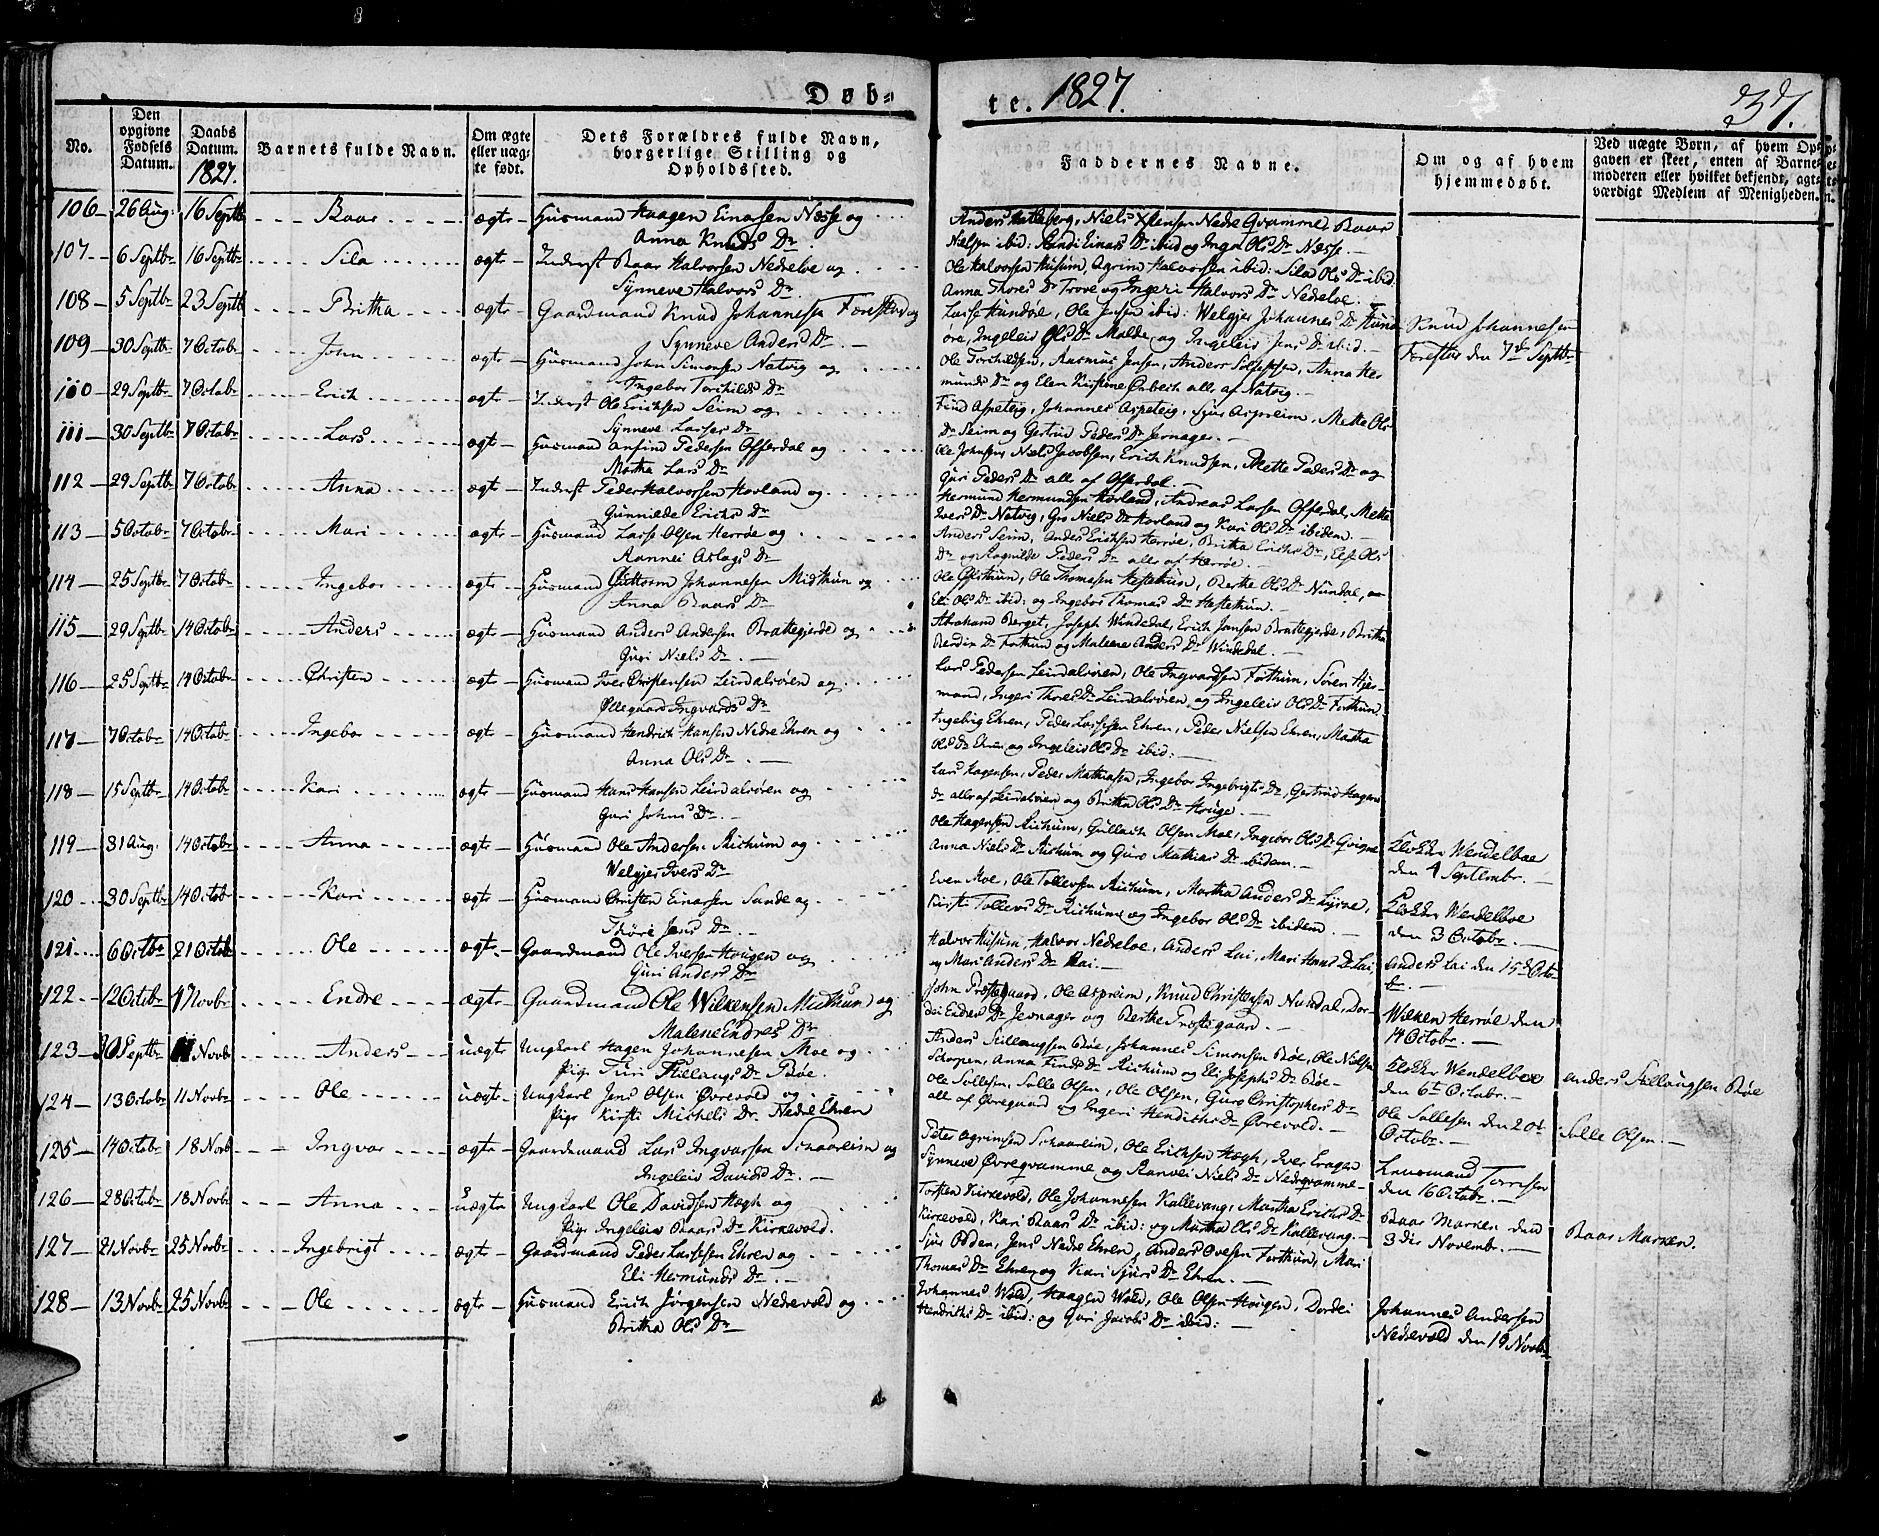 Døb=
te. 1827.
37.
No.
Den opgivne Fødsels Datum.
Daabs Datum. 1827.
Barnets fulde Navn.
Om ægte eller uægte født.
Dets Forældres fulde Navn, borgerlige Stilling og Opholdssted.
Faddernes Navne.
Om og af hvem hjemmedøbt.
Ved uægte Børn, af hvem Opgaven er skeet, enten af Barnemoderen eller hvilket bekjendt, agtværdigt Medlem af Menigheden.
106 26 Aug. 16 Septb Baar ægte Huusmand Haagen Einarsen Næsse og
Anna Knuds Dr.
Niels Nedre Qvamme, Baar
Nielsen ibid: Einars Dr ibid og Inger Ols Dr Næsse.
107 6 Septbr 16 Septbr Sila ægte Inderst Baar Halvorsen Nedreloe og
Synneve Halvors Dr.
Ole Halvorsen Husum, Agrim Halvorsen ibid: Sila Ols Dr ibid.
Anna Thores Dr Trove og Ingeri Halvors Dr Nedreloe.
108 5 Septbr 23 Septb Britha ægte Gaardmand Knud Johannesen Forestad og
Synneve Anders Dr.
Lasse Hundøe, Ole Jensen ibid: Welgjer Johannes Dr Hund
øre, Ingeleis Ols Dr Molde, og Ingeleis Jens Dr ibid.
Knud Johannesen
den 7de Septbr
109 30 Septbr 7 Octobr John ægte Huusmand John Simonsen Natvig og
Ingebor Torchilds Dr
Ole Torchildsen, Rasmus Jensen, Anders Anna Her
munds Dr og Elen Kirstine alle af Natvig.
110 29 Septbr 7 Octobr Erich ægte Inderst Ole Erichsen Seim og
Synneve Lasses Dr
Johannes Aspeteig, Sjur Aspreim, Mette Ols
Dr Seim og Gertrud Peders Dr Jernager.
111 30 Septbr 7 Octobr Lars ægte Huusmand Anfind Pedersen Offerdal og
Martha Lars Dr
Ole Johnsen, Niels Jacobsen, Erich Knudsen, Mette Peders Dr og
Guri Peders Dr alle af Offerdal.
112 29 Septbr 7 Octobr Anna ægte Inderst Peder Halvorsen Hovland og
Gunnilde Erichs Dr
Hermund Hermundsen Hovland, Andreas Larsen Offerdal, Mette
Ivers Dr Natvig, Gro Niels Dr Hovland og Kari Ols Dr ibidem.
113 5 Octobr 7 Octobr Mari ægte Huusmand Lasse Olsen Herrøe og
Rannei Aslags Dr
Anders Seim, Anders Erichsen Herrøe, Britha Erichs Dr, Else Ols
Dr og Ragnilde Peders Dr alle af Herrøe.
114 25 Septbr 7 Octobr Ingebor ægte Huusmand Guttorm Johannesen Midthun og
Anna Baars Dr
Ole Thomasen Hestethun, Berthe Ols Dr Nundal,
Eli Ols Dr ibid: og Ingebor Thomas Dr Hestethun.
115 29 Septbr 14 Octobr Anders ægte Huusmand Anders Andersen Brattegjerde og
Guri Niels Dr.
Abraham Berget, Joseph Windedal, Erich Jonsen Brattegjerde, Britha
Dr Forthun og Malene Anders Dr Windedal.
116 25 Septbr 14 Octobr Christen ægte Huusmand Iver Christensen Leirdalsøren og
Øllegaard Ingvards Dr
Lars Pedersen Leirdalsøren, Ole Ingvardsen Forthun, Søren Hjer-
mand, Ingeri Thores Dr Leirdalsøren, og Ingeleis Ols Dr Forthun.
117 7 Octobr 14 Octobr Ingebor ægte Huusmand Hendrich Hansen Nedre Ehren og
Anna Ols Dr.
Ingebrig Ehren, Peder Lassesen Ehren, Peder Nielsen Ehren, Martha
Ols Dr Ehren og Ingeleis Ols Dr ibid:
118 15 Septbr 14 Octobr Kari ægte Huusmand Hans Hansen Leirdalsøren og
Guri Johns Dr.
Lars Hagensen, Peder Mathiasen, Ingebor Ingebrigts Dr, Gertrud Hagens
Dr alle af Leirdalsøren og Britha Ols Dr Houge.
119 31 Aug. 14 Octobr Anna ægte Huusmand Ole Andersen Richum og
Welgjer Ivers Dr
Ole Hagensen Richum, Gullach Olsen Moe, Ingebor Ols Dr Qvigne
Anna Niels Dr Richum og Guro Mathias Dr ibidem.
Klokker Wendelboe
den 4 Septembr.
120 30 Septbr 14 Octobr Kari ægte Huusmand Christen Einarsen Sande og
Thore Jens Dr.
Even Moe, Ole Tollevsen Richum, Martha Anders Dr Lysne,
Kirsti Tollevs Dr Richum og Ingebor Ols Dr ibidem.
Klokker Wendelboe
den 3 Octobr.
121 6 Octbr 21 Octob Ole ægte Gaardmand Ole Iversen Hougen og
Guri Anders Dr
Halvor Husum, Halvor Nedreloe, Anders Lai, Mari Hans Dr Lai
og Mari Anders Dr Rai.
Anders Lai den 15de Octo
br.
122 12 Octobr Novbr Endre ægte Gaardmand Ole Wilkensen Midthun og
Malene Endres Dr
John Prestegaard, Ole Aspreim, Knud Christensen Nundal, Dor-
dei Endres Dr Jernager og Berthe Prestegaard.
Wilken Herrøe den
14 Octobr.
123 30 Septbr 11 Novb Anders uægte Ungkarl Hagen Johannesen Moe og
Pige Turi Stillaugs Dr Bøe.
Anders Stillaugsen Bøe, Johannes Simonsen Bøe, Ole Nielsen
Anna Finds Dr Richum og Eli Josephs Dr Bøe
Klokker Wendelboe
den 6te Octobr.
Anders Stillaugsen Bøe
124 13 Octobr 11 Novb Ole uægte Ungkarl Jens Olsen Øvrevold og
Pige Kirsti Michels Dr Nedre Ehren
Ole Sollesen, Solle Olsen, Ole Olsen, Guro Christophers Dr
alle af Øvregaard og Ingeri Hendrichs Dr Øvrevold.
Ole Sollesen den 20de
Octobr.
Solle Olsen.
125 14 Octobr 18 Novb Ingvar ægte Gaardmand Lars Ingvarsen Schaarlein og
Ingeleis Davids Dr.
Peter Agrimsen Schaarlein, Ole Erichsen Hægh, Iver Eragen
Synneve Øvreqvamme og Ranvei Niels Dr Nedreqvamme
Lensmand
den 16 Octobr.
126 28 Octobr 18 Novb Anna uægte Ungkarl Ole Davidsen Hægh og
Pige Ingeleis Baars Dr Kirkevold.
Torsten Kirkevold, Ole Johannesen Kallevang, Martha Erichs Dr
Kirkevold, Kari Baars Dr ibid: og Martha Ols Dr Kallevang.
Baar Marken den
3die Novembr.
Baar Marken.
127 21 Novbr 25 Novbr Ingebrigt ægte Gaardmand Peder Lassesen Ehren og
Eli Hermunds Dr.
Sjur Odden, Jens Nedre Ehren, Anders Ovesen Forthun, Mari
Thomas Dr Ehren og Kari Sjurs Dr Ehren.
128 13 Novbr 25 Novb Ole ægte Huusmand Erich Jørgensen Nedrevold og
Britha Ols Dr
Johannes Wold, Haagen Wold, Ole Olsen Hougen, Dordei
Hendrichs Dr ibid: og Guri Jacobs Dr ibid:
Johannes Andersen
Nedrevold den 19 Novbr